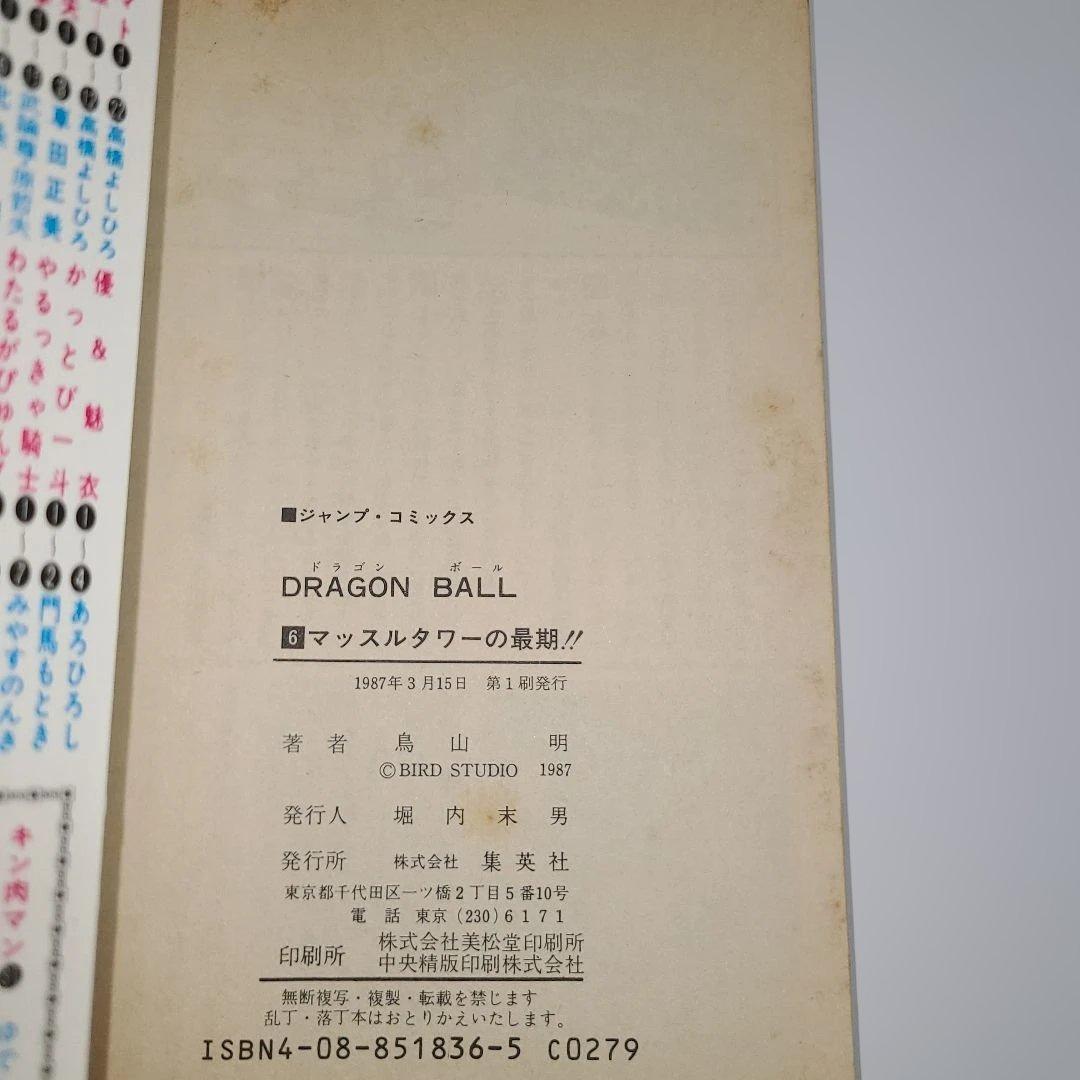 ■ジャンプ・コミックス
ドラゴン ボール
DRAGON BALL
6 マッスルタワーの最期!!
1987年3月15日 第1刷発行
著者 鳥山 明
©BIRD STUDIO 1987
発行人 堀内末男
発行所 株式会社 集英社
東京都千代田区一ツ橋2丁目5番10号
電話 東京(230)6171
印刷所 株式会社美松堂印刷所
中央精版印刷株式会社
無断複写・複製・転載を禁じます
乱丁・落丁本はおとりかえいたします。
ISBN4-08-851836-5 C0279
ト ❶〜㉒ 高橋よしひろ
❶〜⓬ 高橋よしひろ
❶〜❸ 車田正美
武論尊・原哲夫
優&魅衣 ❶〜❹ あろひろし
かっとび一斗 ❶〜❷ 門馬もとき
やるっきゃ騎士 ❶〜❼ みやすのんき
わたるがぴゅん
キン肉マン